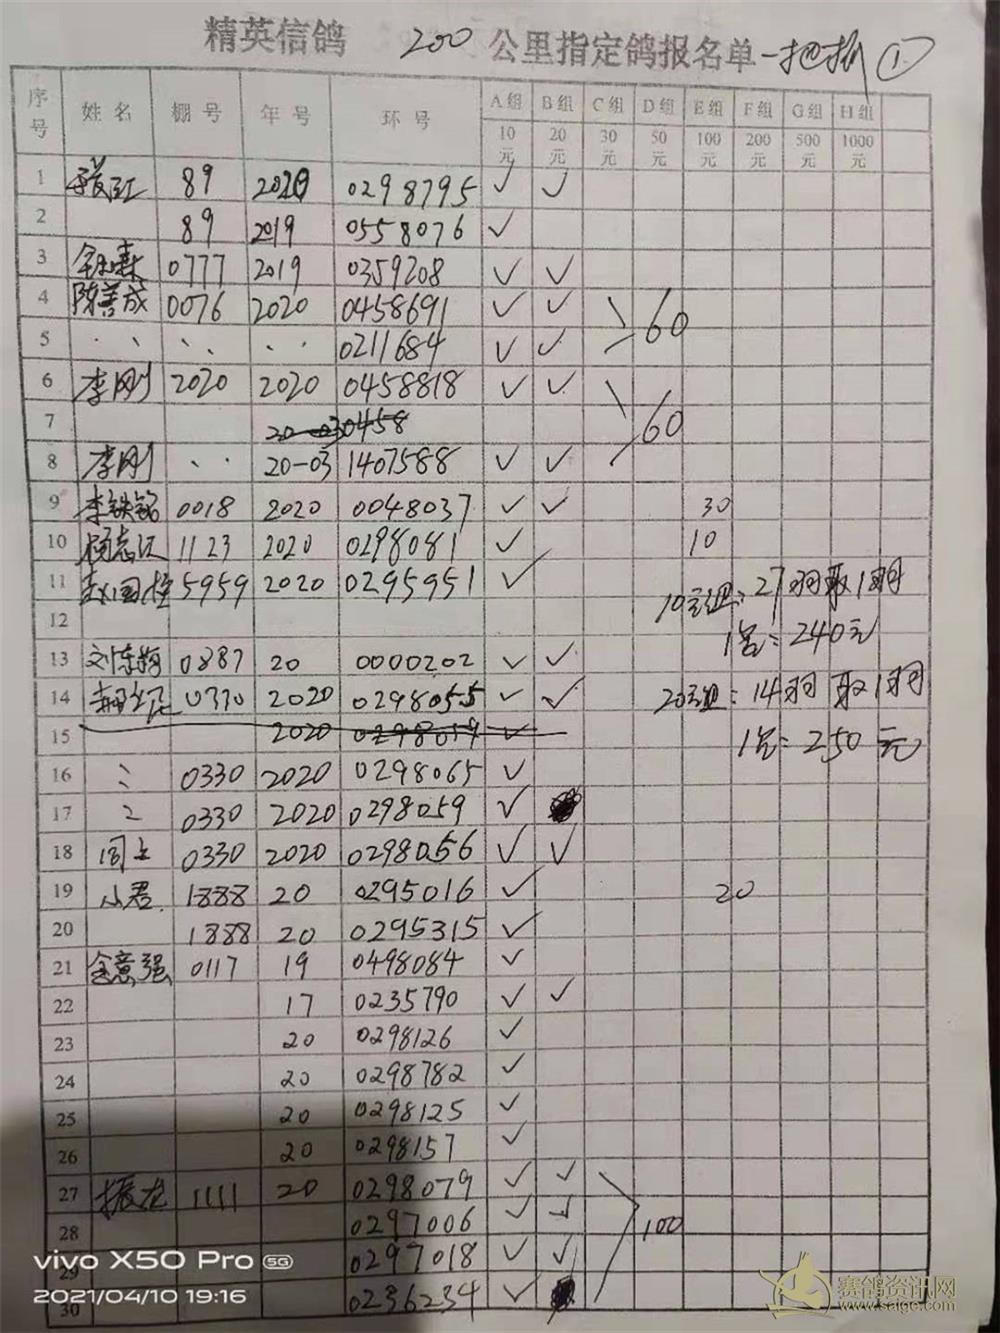 精英信鸽 200 公里指定鸽报名单 一把抓 ①
序号 姓名 棚号 年号 环号 A组 B组 C组 D组 E组 F组 G组 H组
10元 20元 30元 50元 100元 200元 500元 1000元
1 89 2020 0298795 ✓ ✓
2 89 2019 0558076 ✓
3 0777 2019 0359208 ✓ ✓
4 陈善成 0076 2020 0458691 ✓ ✓ 60
5 0211684 ✓ ✓
6 李刚 2020 2020 0458818 ✓ ✓ 60
7 20-030458
8 李刚 20-03 1407588 ✓ ✓
9 李铁铭 0018 2020 0048037 ✓ ✓ 30
10 杨志江 1123 2020 0298081 ✓ 10
11 赵国栓 5959 2020 0295951 ✓
10元组:27羽取1羽
12
1名:240元
13 0887 20 0000202 ✓ ✓
14 0330 2020 0298055 ✓ ✓
20元组:14羽取1羽
15 2020 0298019 ✓
1名:250元
16 0330 2020 0298065 ✓
17 0330 2020 0298059 ✓
18 周立 0330 2020 0298056 ✓ ✓
19 小君 1888 20 0295016 ✓ 20
20 1888 20 0295315 ✓
21 含意强 0117 19 0498084 ✓
22 17 0235790 ✓ ✓
23 20 0298126 ✓
24 20 0298782 ✓
25 20 0298125 ✓
26 20 0298157 ✓
27 振龙 1111 20 0298079 ✓ ✓
28 0297006 ✓ ✓ 100
29 0297018 ✓ ✓
30 0236234 ✓
vivo X50 Pro 5G
2021/04/10 19:16
赛鸽资讯网
www.saige.com